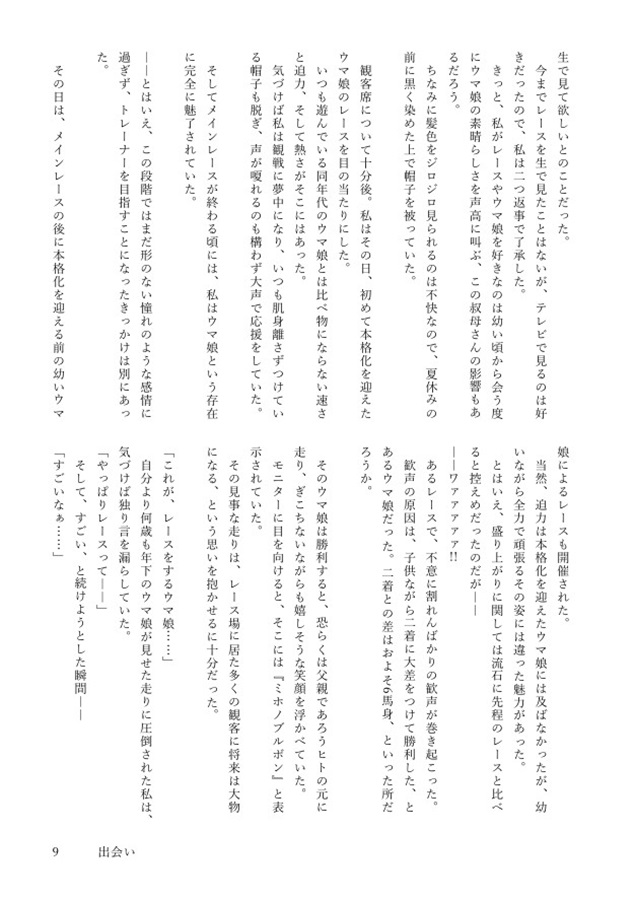 生で見て欲しいとのことだった。
　今までレースを生で見たことはないが、テレビで見るのは好
きだったので、私は二つ返事で了承した。
　きっと、私がレースやウマ娘を好きなのは幼い頃から会う度
にウマ娘の素晴らしさを声高に叫ぶ、この叔母さんの影響もあ
るだろう。
　ちなみに髪色をジロジロ見られるのは不快なので、夏休みの
前に黒く染めた上で帽子を被っていた。
　観客席について十分後。私はその日、初めて本格化を迎えた
ウマ娘のレースを目の当たりにした。
　いつも遊んでいる同年代のウマ娘とは比べ物にならない速さ
と迫力、そして熱さがそこにはあった。
　気づけば私は観戦に夢中になり、いつも肌身離さずつけてい
る帽子も脱ぎ、声が嗄れるのも構わず大声で応援をしていた。
　そしてメインレースが終わる頃には、私はウマ娘という存在
に完全に魅了されていた。
――とはいえ、この段階ではまだ形のない憧れのような感情に
過ぎず、トレーナーを目指すことになったきっかけは別にあっ
た。
　その日は、メインレースの後に本格化を迎える前の幼いウマ
娘によるレースも開催された。
　当然、迫力は本格化を迎えたウマ娘には及ばなかったが、幼
いながら全力で頑張るその姿には違った魅力があった。
　とはいえ、盛り上がりに関しては流石に先程のレースと比べ
ると控えめだったのだが――
――ワァァァァァ!!
　あるレースで、不意に割れんばかりの歓声が巻き起こった。
　歓声の原因は、子供ながら二着に大差をつけて勝利した、と
あるウマ娘だった。二着との差はおよそ6馬身、といった所だ
ろうか。
　そのウマ娘は勝利すると、恐らくは父親であろうヒトの元に
走り、ぎこちないながらも嬉しそうな笑顔を浮かべていた。
　モニターに目を向けると、そこには『ミホノブルボン』と表
示されていた。
　その見事な走りは、レース場に居た多くの観客に将来は大物
になる、という思いを抱かせるに十分だった。
「これが、レースをするウマ娘……」
　自分より何歳も年下のウマ娘が見せた走りに圧倒された私は、
気づけば独り言を漏らしていた。
「やっぱりレースって――」
　そして、すごい、と続けようとした瞬間――
「すごいなぁ……」
9　出会い